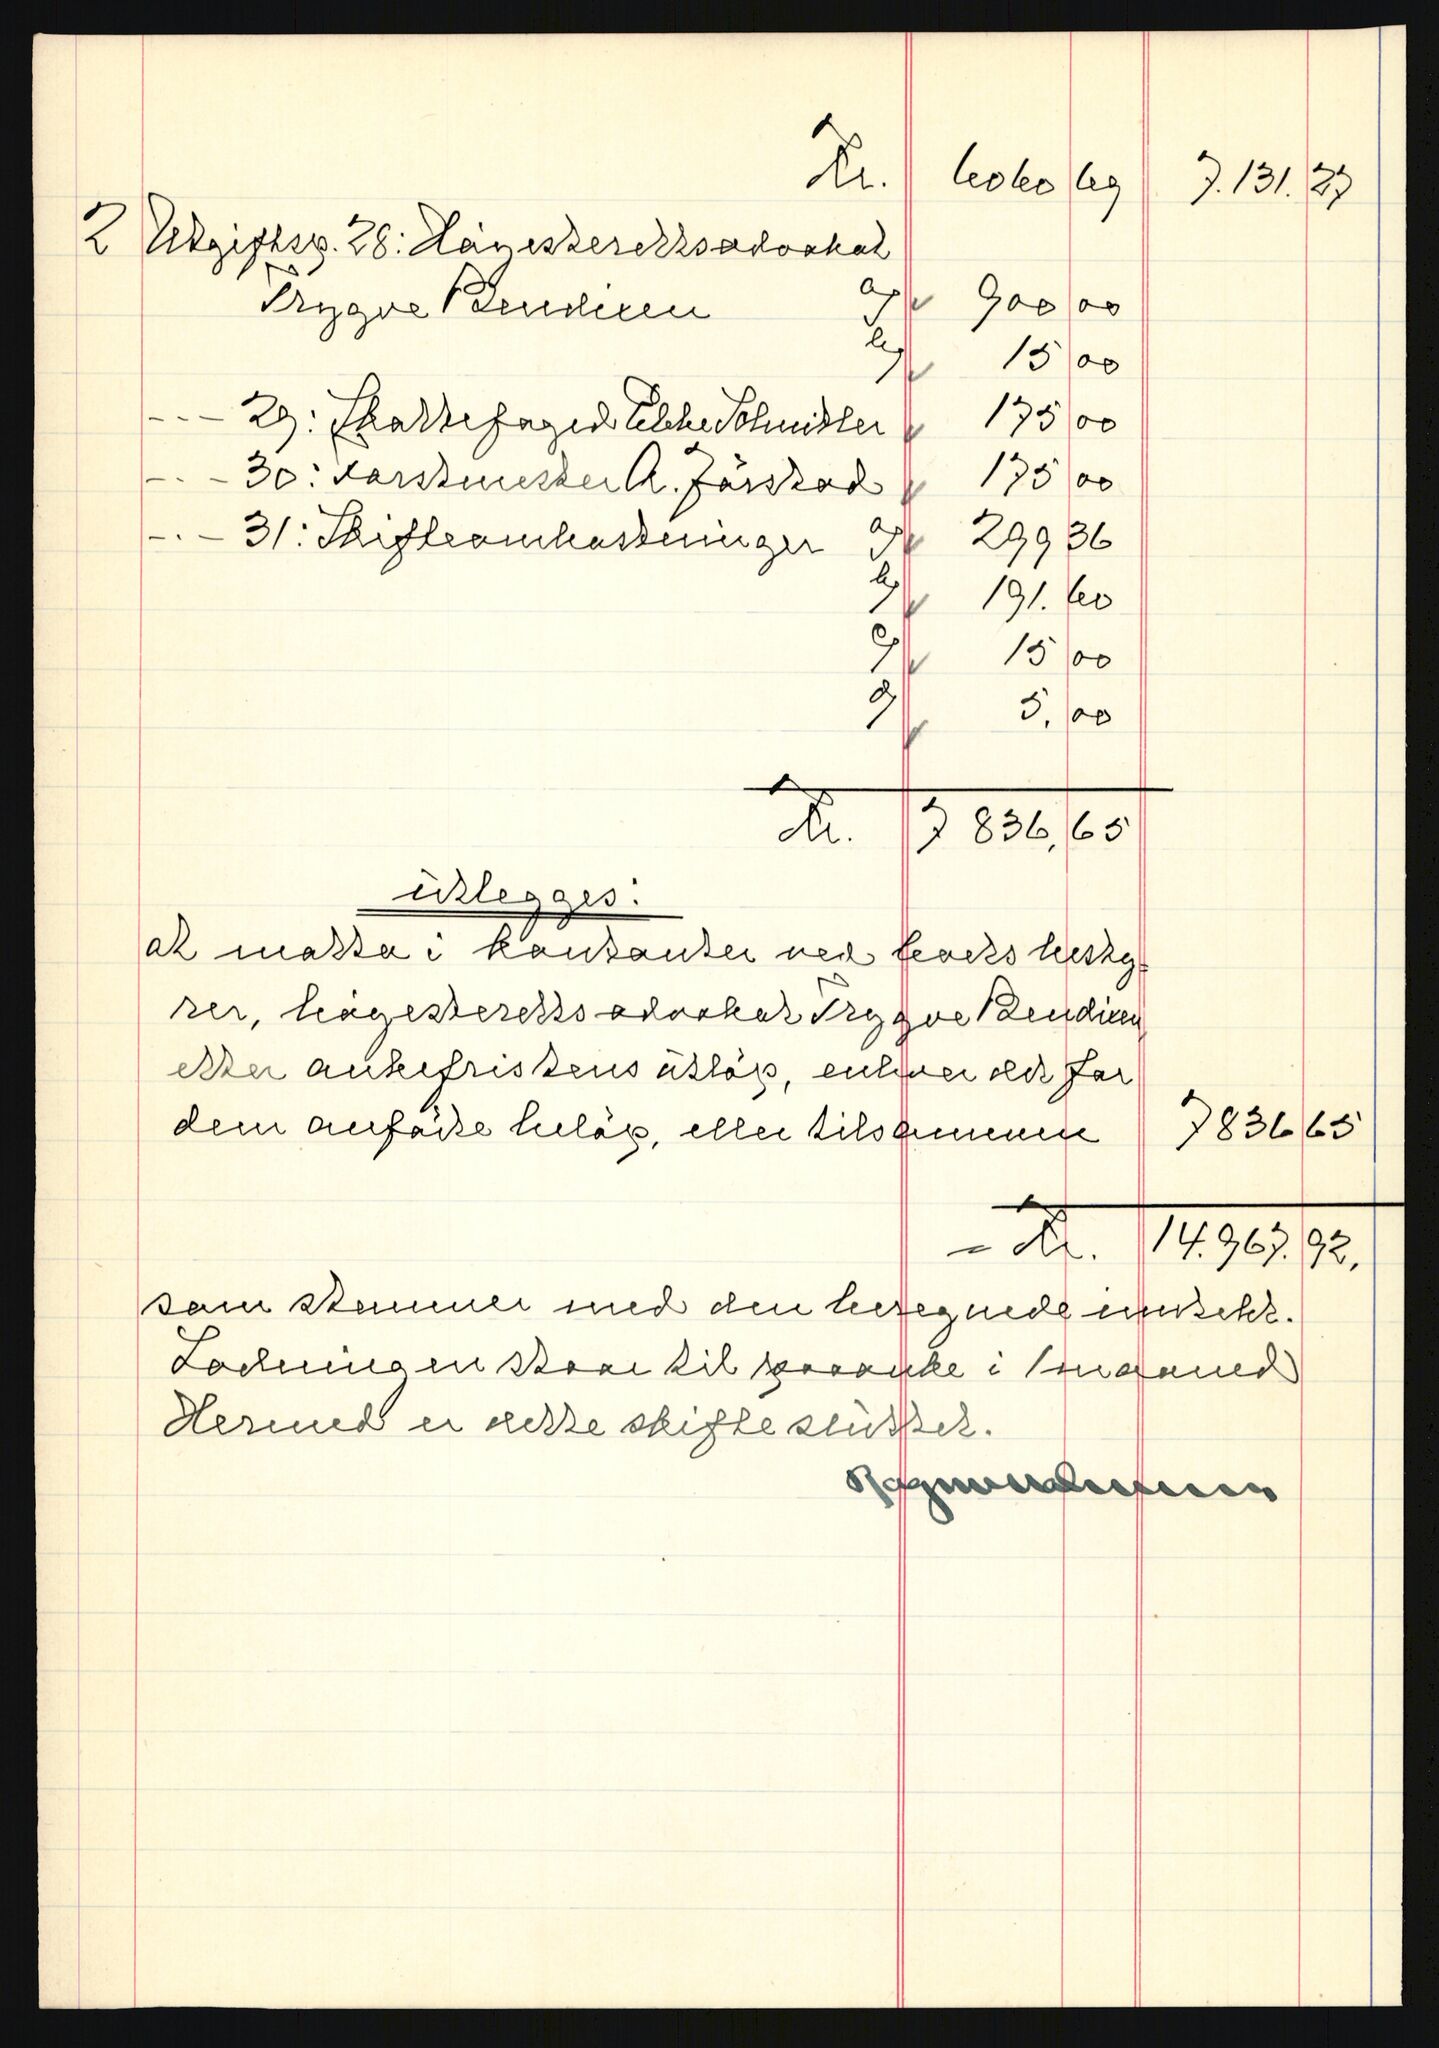 Kr. 6060 69 7.131.27
2 Utgiftsp. 28: Høyesterettsadvokat
Trygve Bendixen a) 900 00
b) 15 00
- - - 29: Skattefoged Ebbe Schnitler 175 00
- . - 30: Forstmester A. Jørstad 175 00
- . - 31: Skifteomkostninger a) 299 36
b) 191. 60
c) 15 00
d) 5, 00
Kr. 7 836, 65
utlegges:
at motta i kontanter ved boets besty-
rer, høyesterettsadvokat Trygve Bendixen
etter ankefristens utløp, enhver det for
dem anførte beløp, eller tilsammen 7836 65
= Kr. 14.967.92.
som stemmer med den beregnede inntekt.
Lodningen staar til paaanke i 1 maaned
Hermed er dette skifte sluttet.